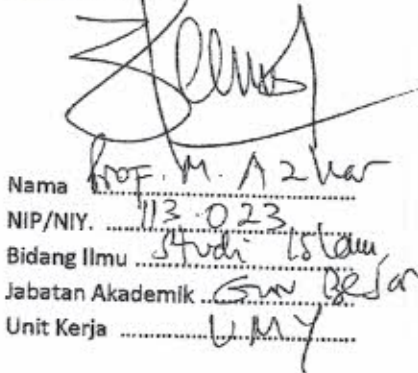 Nama Prof. M. Azhar
NIP/NIY. 113.023
Bidang Ilmu Studi Islam
Jabatan Akademik Guru Besar
Unit Kerja UMY